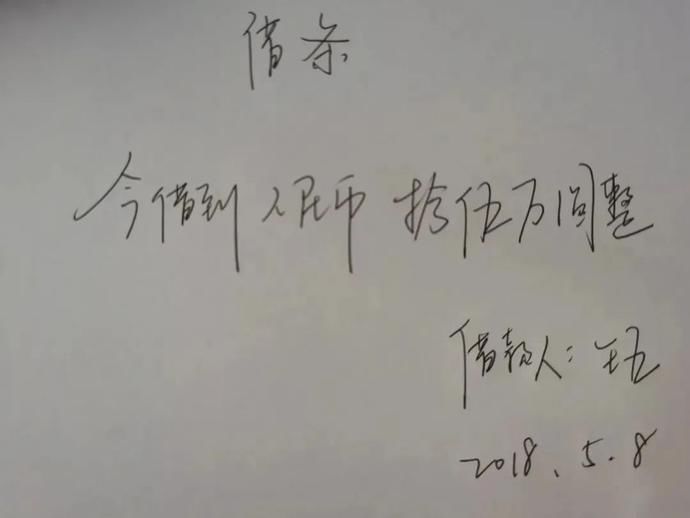 借条
今借到人民币 拾伍万圆整
借款人：王五
2018.5.8